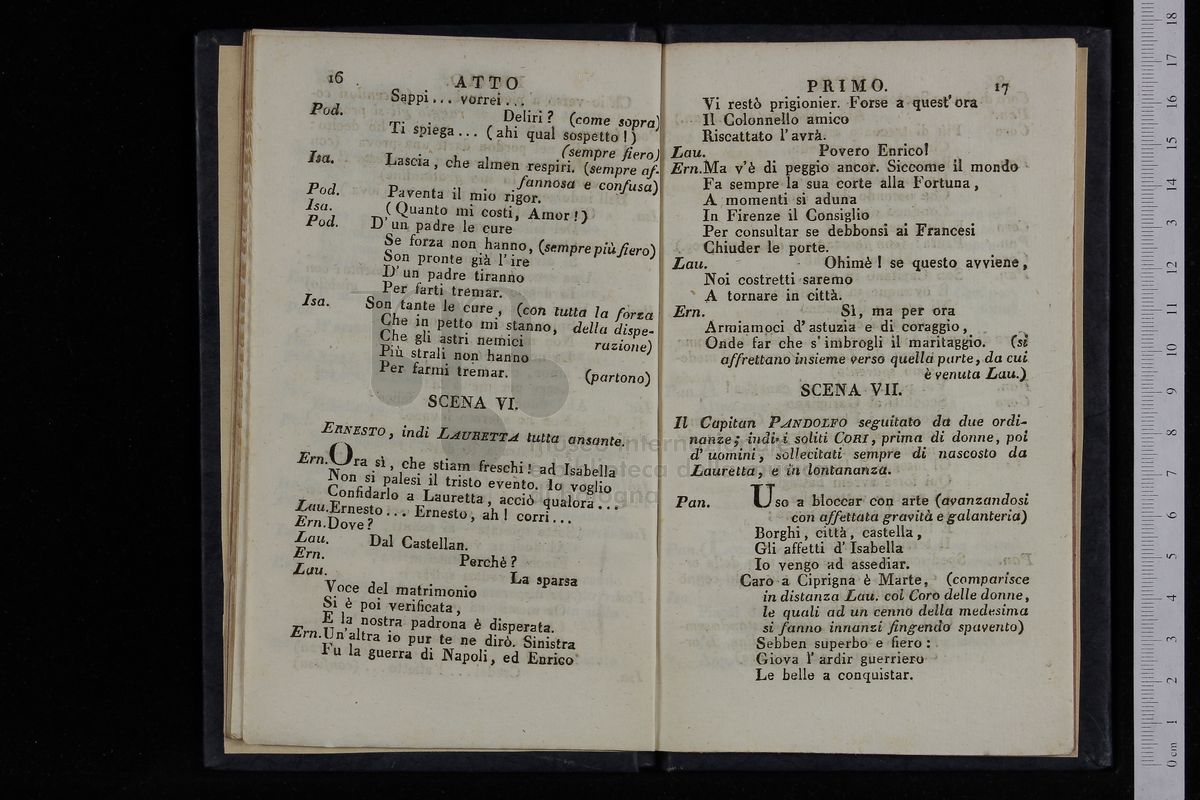 16 ATTO
Sappi... vorrei...
Pod. Deliri? (come sopra)
Ti spiega... (ahi qual sospetto!)
(sempre fiero)
Isa. Lascia, che almen respiri. (sempre af-
fannosa e confusa)
Pod. Paventa il mio rigor.
Isa. (Quanto mi costi, Amor!)
Pod. D'un padre le cure
Se forza non hanno, (sempre più fiero)
Son pronte già l'ire
D'un padre tiranno
Per farti tremar.
Isa. Son tante le cure, (con tutta la forza
Che in petto mi stanno, della dispe-
Che gli astri nemici razione)
Più strali non hanno
Per farmi tremar. (partono)
SCENA VI.
ERNESTO, indi LAURETTA tutta ansante.
Ern. Ora sì, che stiam freschi! ad Isabella
Non si palesi il tristo evento. Io voglio
Confidarlo a Lauretta, acciò qualora...
Lau. Ernesto... Ernesto, ah! corri...
Ern. Dove?
Lau. Dal Castellan.
Ern. Perchè?
Lau. La sparsa
Voce del matrimonio
Si è poi verificata,
E la nostra padrona è disperata.
Ern. Un'altra io pur te ne dirò. Sinistra
Fu la guerra di Napoli, ed Enrico
PRIMO. 17
Vi restò prigionier. Forse a quest'ora
Il Colonnello amico
Riscattato l'avrà.
Lau. Povero Enrico!
Ern. Ma v'è di peggio ancor. Siccome il mondo
Fa sempre la sua corte alla Fortuna,
A momenti si aduna
In Firenze il Consiglio
Per consultar se debbonsi ai Francesi
Chiuder le porte.
Lau. Ohimè! se questo avviene,
Noi costretti saremo
A tornare in città.
Ern. Sì, ma per ora
Armiamoci d'astuzia e di coraggio,
Onde far che s'imbrogli il maritaggio. (si
affrettano insieme verso quella parte, da cui
è venuta Lau.)
SCENA VII.
Il Capitan PANDOLFO seguitato da due ordi-
nanze; indi i soliti CORI, prima di donne, poi
d'uomini, sollecitati sempre di nascosto da
Lauretta, e in lontananza.
Pan. Uso a bloccar con arte (avanzandosi
con affettata gravità e galanteria)
Borghi, città, castella,
Gli affetti d'Isabella
Io vengo ad assediar.
Caro a Ciprigna è Marte, (comparisce
in distanza Lau. col Coro delle donne,
le quali ad un cenno della medesima
si fanno innanzi fingendo spavento)
Sebben superbo e fiero:
Giova l'ardir guerriero
Le belle a conquistar.
0 cm 1 2 3 4 5 6 7 8 9 10 11 12 13 14 15 16 17 18